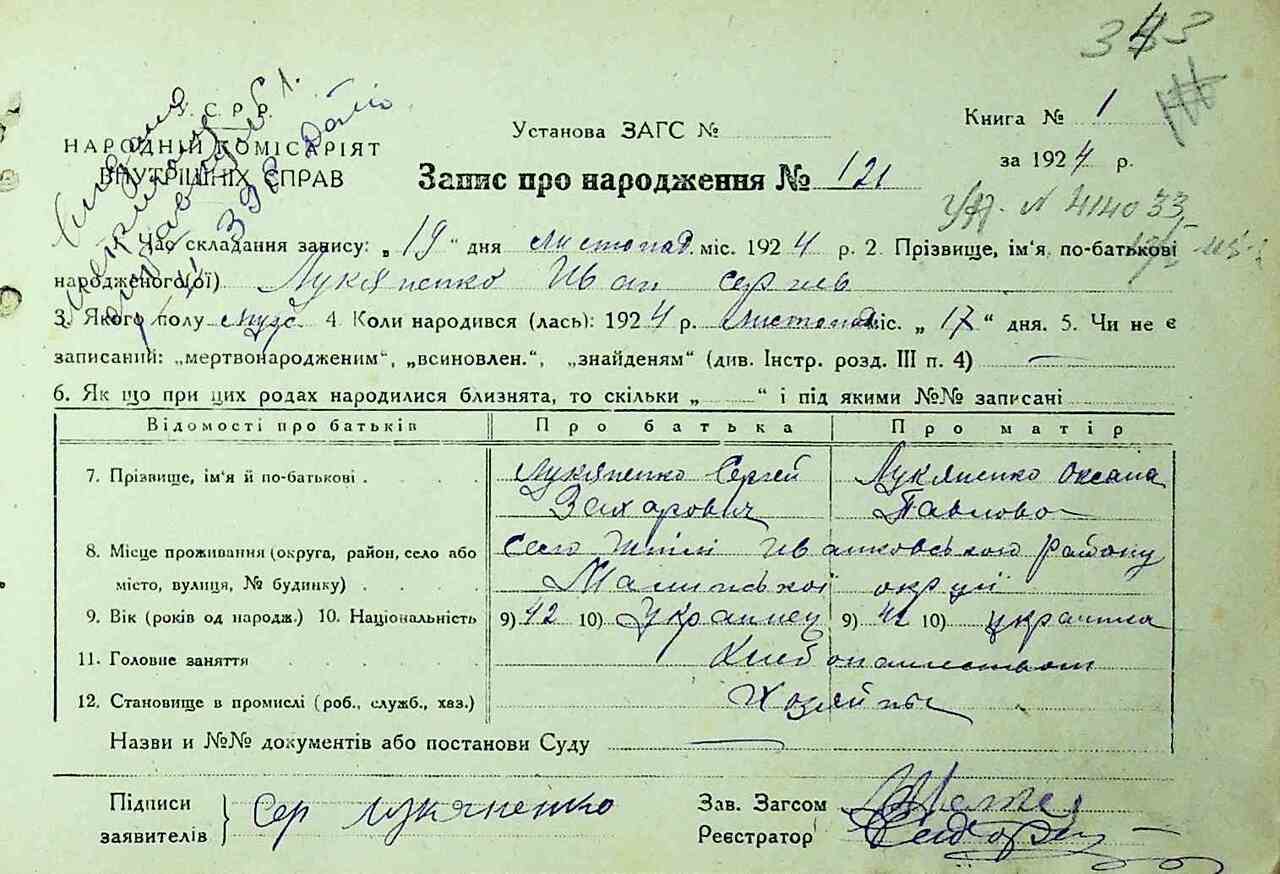 343
У. С. Р. Р.
НАРОДНІЙ КОМІСАРІЯТ
ВНУТРІШНІХ СПРАВ
Установа ЗАГС №
Книга № 1
за 1924 р.
Запис про народження № 121
1. Час складання запису: „19“ дня листопад. міс. 1924 р. 2. Прізвище, ім'я, по-батькові
народженого(ої) Лукяненко Иван Сергіев
3. Якого полу муж. 4. Коли народився (лась): 1924 р. листопад. міс. „17“ дня. 5. Чи не є
записаний: „мертвонародженим“, „всиновлен.“, „знайденям“ (див. Інстр. розд. III п. 4)
6. Як що при цих родах народилися близнята, то скільки „ “ і під якими №№ записані
Відомості про батьків Про батька Про матір
7. Прізвище, ім'я й по-батькові Лукяненко Сергей Лукяненко Оксана
Захарович Павловна
8. Місце проживання (округа, район, село або Село Иванковського району
місто, вулиця, № будинку) Малинської округи
9. Вік (років од народж.) 10. Національність 9) 42 10) Украинец 9) 42 10) украинка
11. Головне заняття Хлебопашеством
12. Становище в промислі (роб., служб., хаз.) Хозяйны
Назви и №№ документів або постанови Суду
Підписи
заявителів
Сер Лукяненко
Зав. Загсом
Реєстратор